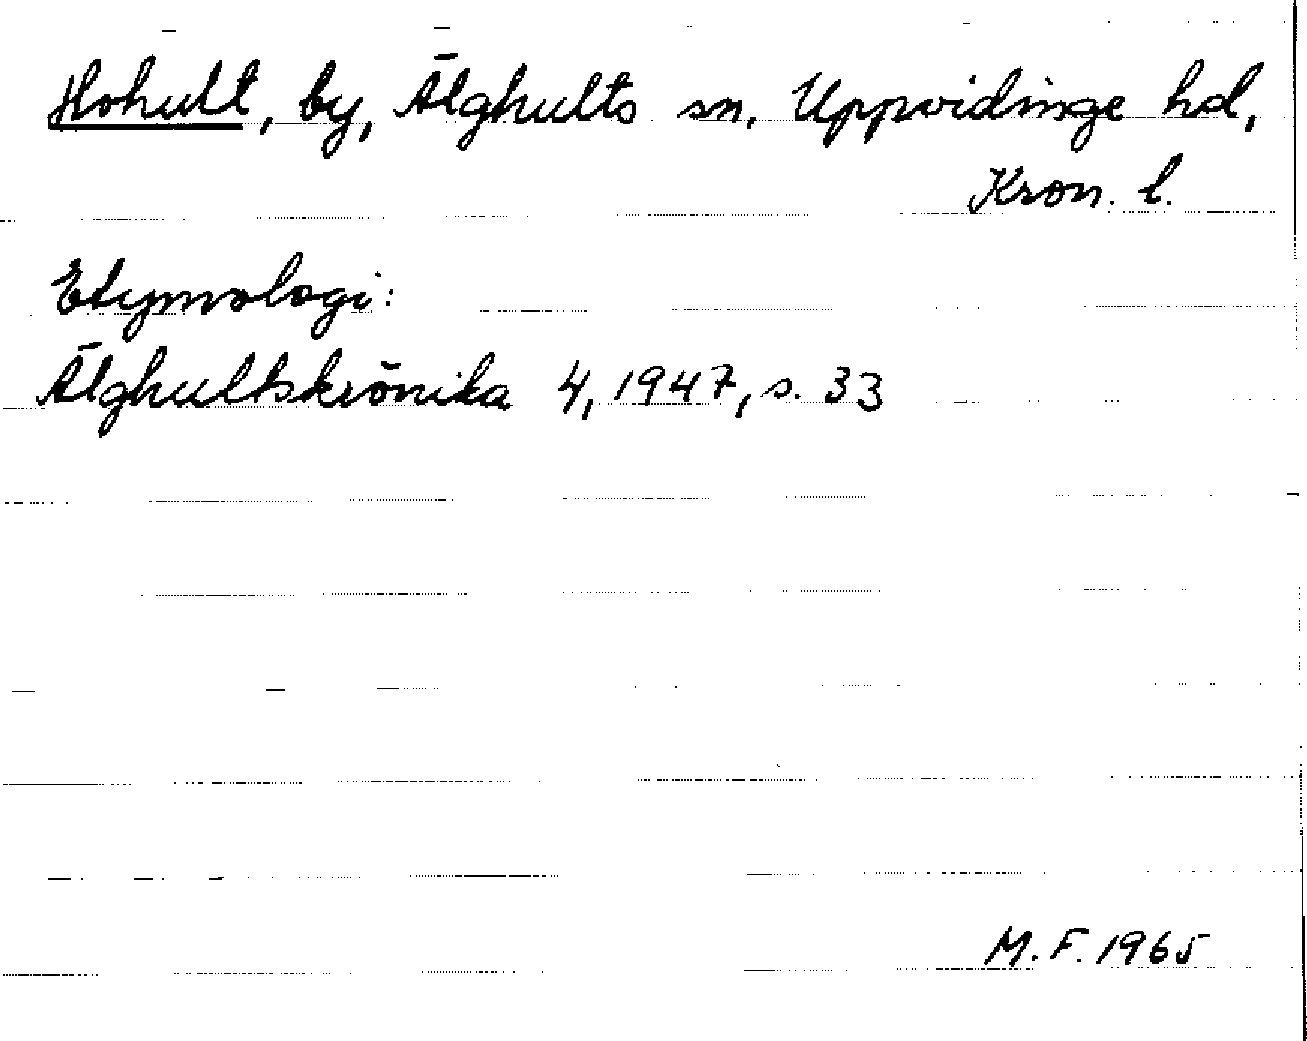 Hohult, by, Älghults sn, Uppvidinge hd,
Kron. l.
Etymologi:
Älghultskrönika 4, 1947, s. 33
M. F. 1965